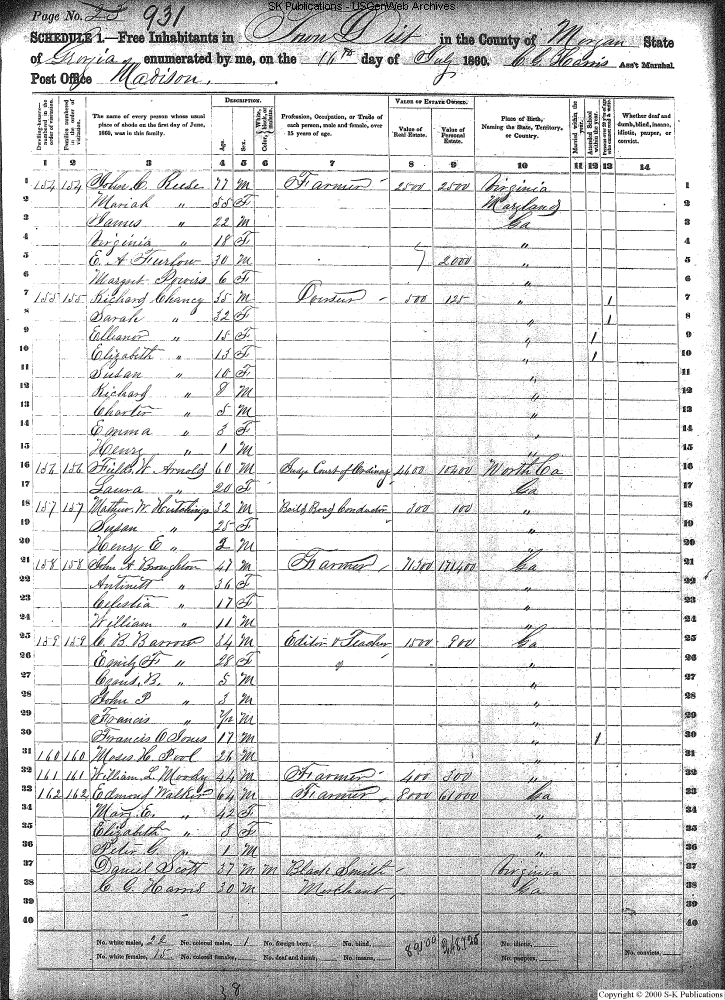 SK Publications - USGenWeb Archives
Page No. 23 931
SCHEDULE 1.—Free Inhabitants in Town Dist in the County of Morgan State
of Georgia enumerated by me, on the 16th day of July 1860. C G Harris Ass't Marshal.
Post Office Madison,
Dwelling-houses—numbered in the order of visitation.
Families numbered in the order of visitation.
The name of every person whose usual place of abode on the first day of June, 1860, was in this family.
DESCRIPTION.
Age.
Sex.
Color, White, black, or mulatto.
Profession, Occupation, or Trade of each person, male and female, over 15 years of age.
VALUE OF ESTATE OWNED.
Value of Real Estate.
Value of Personal Estate.
Place of Birth, Naming the State, Territory, or Country.
Married within the year.
Attended School within the year.
Whether deaf and dumb, blind, insane, idiotic, pauper, or convict.
1 2 3 4 5 6 7 8 9 10 11 12 13 14
1 154 154 John C Reese 77 M Farmer 2500 2500 Virginia 1
2 Mariah " 55 F Maryland 2
3 James " 22 M Ga 3
4 Virginia " 18 F " 4
5 E. A Furlow 30 M 2000 " 5
6 Margret 6 F " 6
7 155 155 Richard Chancy 35 M 500 125 " 1 7
8 Sarah " 32 F " 1 8
9 Elleanor " 15 F " 1 9
10 Elizabeth " 13 F " 1 10
11 Susan " 10 F " 11
12 Richard " 8 M " 12
13 Charter " 5 M " 13
14 Emma " 3 F " 14
15 Henry " 1 M " 15
16 156 156 Fields W Arnold 60 M Judge Court of Ordinary 4600 10400 16
17 Laura " 20 F Ga 17
18 157 157 Mathew. W Hutchings 32 M Rail Road Conductor 300 100 " 18
19 Susan " 25 F " 19
20 Henry E " 2 M " 20
21 158 158 John A Broughton 47 M Farmer 71300 171400 Ga 21
22 Antinett " 36 F " 22
23 Celestia " 17 F " 23
24 William " 11 M " 24
25 159 159 C. B. Barrow 34 M Editor & Teacher 1500 900 Ga 25
26 Emily F " 28 F " 26
27 B. " 5 M " 27
28 John P " 3 M " 28
29 Francis " M " 29
30 Francis C Jones 17 M " 1 30
31 160 160 Moses H Pool 26 M " 31
32 161 161 William L Moody 44 M Farmer 400 300 " 32
33 162 162 Edmond Walker 64 M Farmer 8000 61000 Ga 33
34 Mary E. " 42 F " 34
35 Elizabeth " 3 F " 35
36 Peter G. " 1 M " 36
37 Daniel Scott 37 M M Black Smith Virginia 37
38 C G Harris 30 M Merchant Ga 38
39 39
40 40
No. white males, 22 No. colored males, 1 No. foreign born, No. blind, No. idiotic,
No. white females, 15 No. colored females, No. deaf and dumb, No. insane, No. paupers, No. convicts,
89100
38
Copyright © 2000 S-K Publications